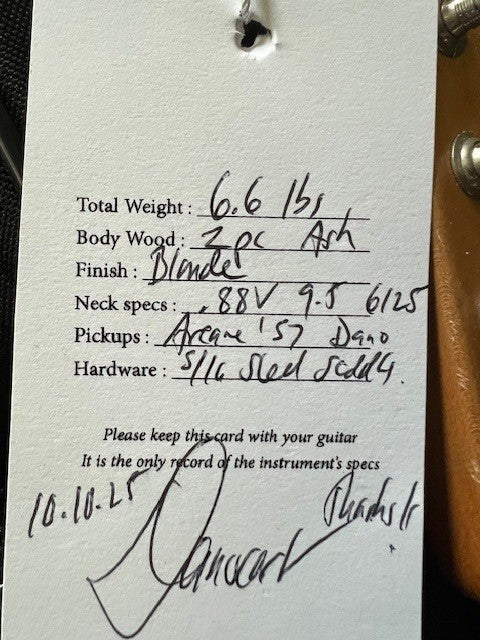 Total Weight : 6.6 lbs
Body Wood : 2 pc Ash
Finish : Blonde
Neck specs : .88V 9.5 6125
Pickups : Arcane '57 Dano
Hardware : 5/16 Steel Saddles.
Please keep this card with your guitar
It is the only record of the instrument's specs
10.10.25
Thanks!!
Danocaster